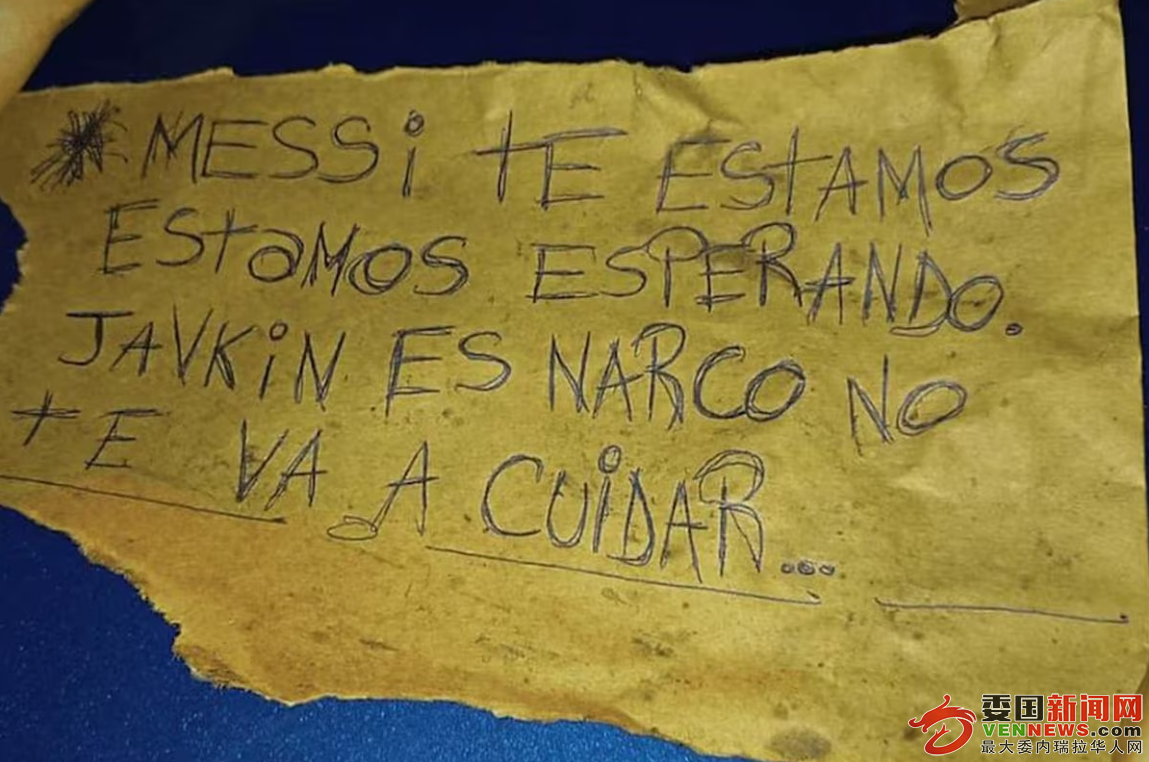 MESSi tE EStAMOS
EStaMOS ESPERANDO.
JAVKiN ES NARCO NO
tE VA A CUiDAR...
委国新闻网
VENNEWS.com
最大委内瑞拉华人网